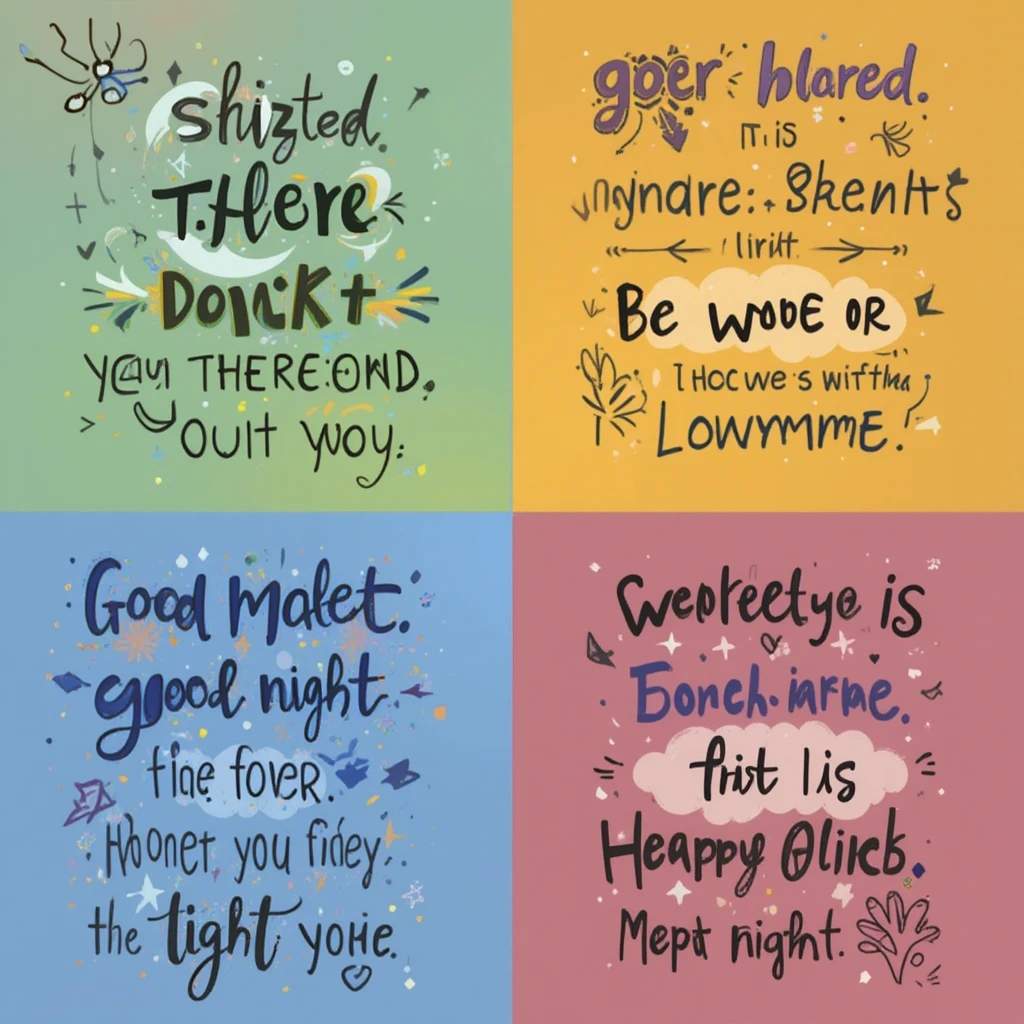 shizted.
T.Here
DONK t
YEAUI THERE:OWD,
OUIT YVOY:
goer blared.
IT.IS
ngindre:. SkenHts
lirilt.
BE WOOE OR
IHOCWE'S WITTHA;
LOWYMME.!
Good Malet.
good night
tine fover.
Hhonet you fidey.
the tight yohe.
Cweprectyo is
Eonch.iarme.
frist lis
Heappy Olircb.
Mept night.